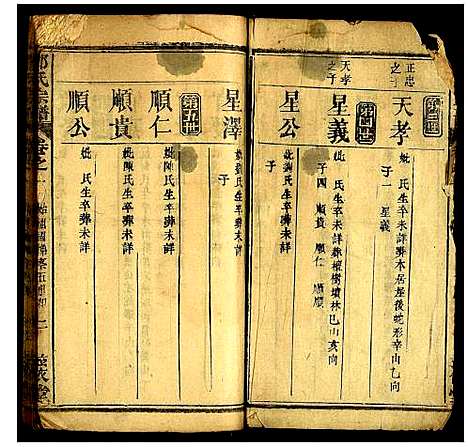 正忠之子
天孝
妣 氏生卒未詳葬木居屋後蛇形辛山乙向
子一 星義
第四世
天孝之子
星義
妣 氏生卒未詳葬檀樹墳林巳山亥向
子四 順貴 順仁 順順
星公
妣劉氏生卒葬未詳
子
星澤
妣 氏生卒葬未詳
子
第五世
順仁
妣陳氏生卒葬未詳
順貴
妣陳氏生卒葬未詳
順公
妣 氏生卒葬未詳
氏宗譜
卷之一